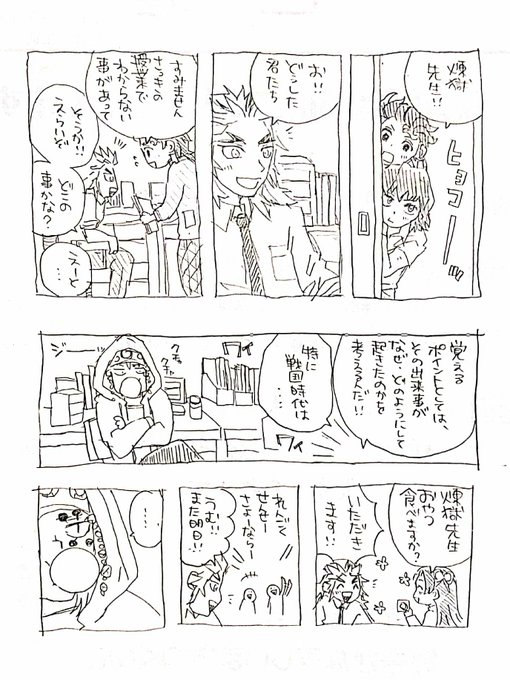 煉獄
先生!!
ヒョコーッ
お!!
どうした
君たち
すみません
さっきの
授業で
わからない
事があって
そうか!!
えらいぞ
どこの
事かな?
えーと
…
覚える
ポイントとしては、
その出来事が
なぜ・どのようにして
起きたのかを
考えるんだ!!
特に
戦国時代は
……
ワイ
ワイ
クチャ
クチャ
ジーッ…
煉獄先生
おやつ
食べますか?
いただき
ます!!
れんごく
せんせー
さよーならー
うむ!!
また明日!!
…